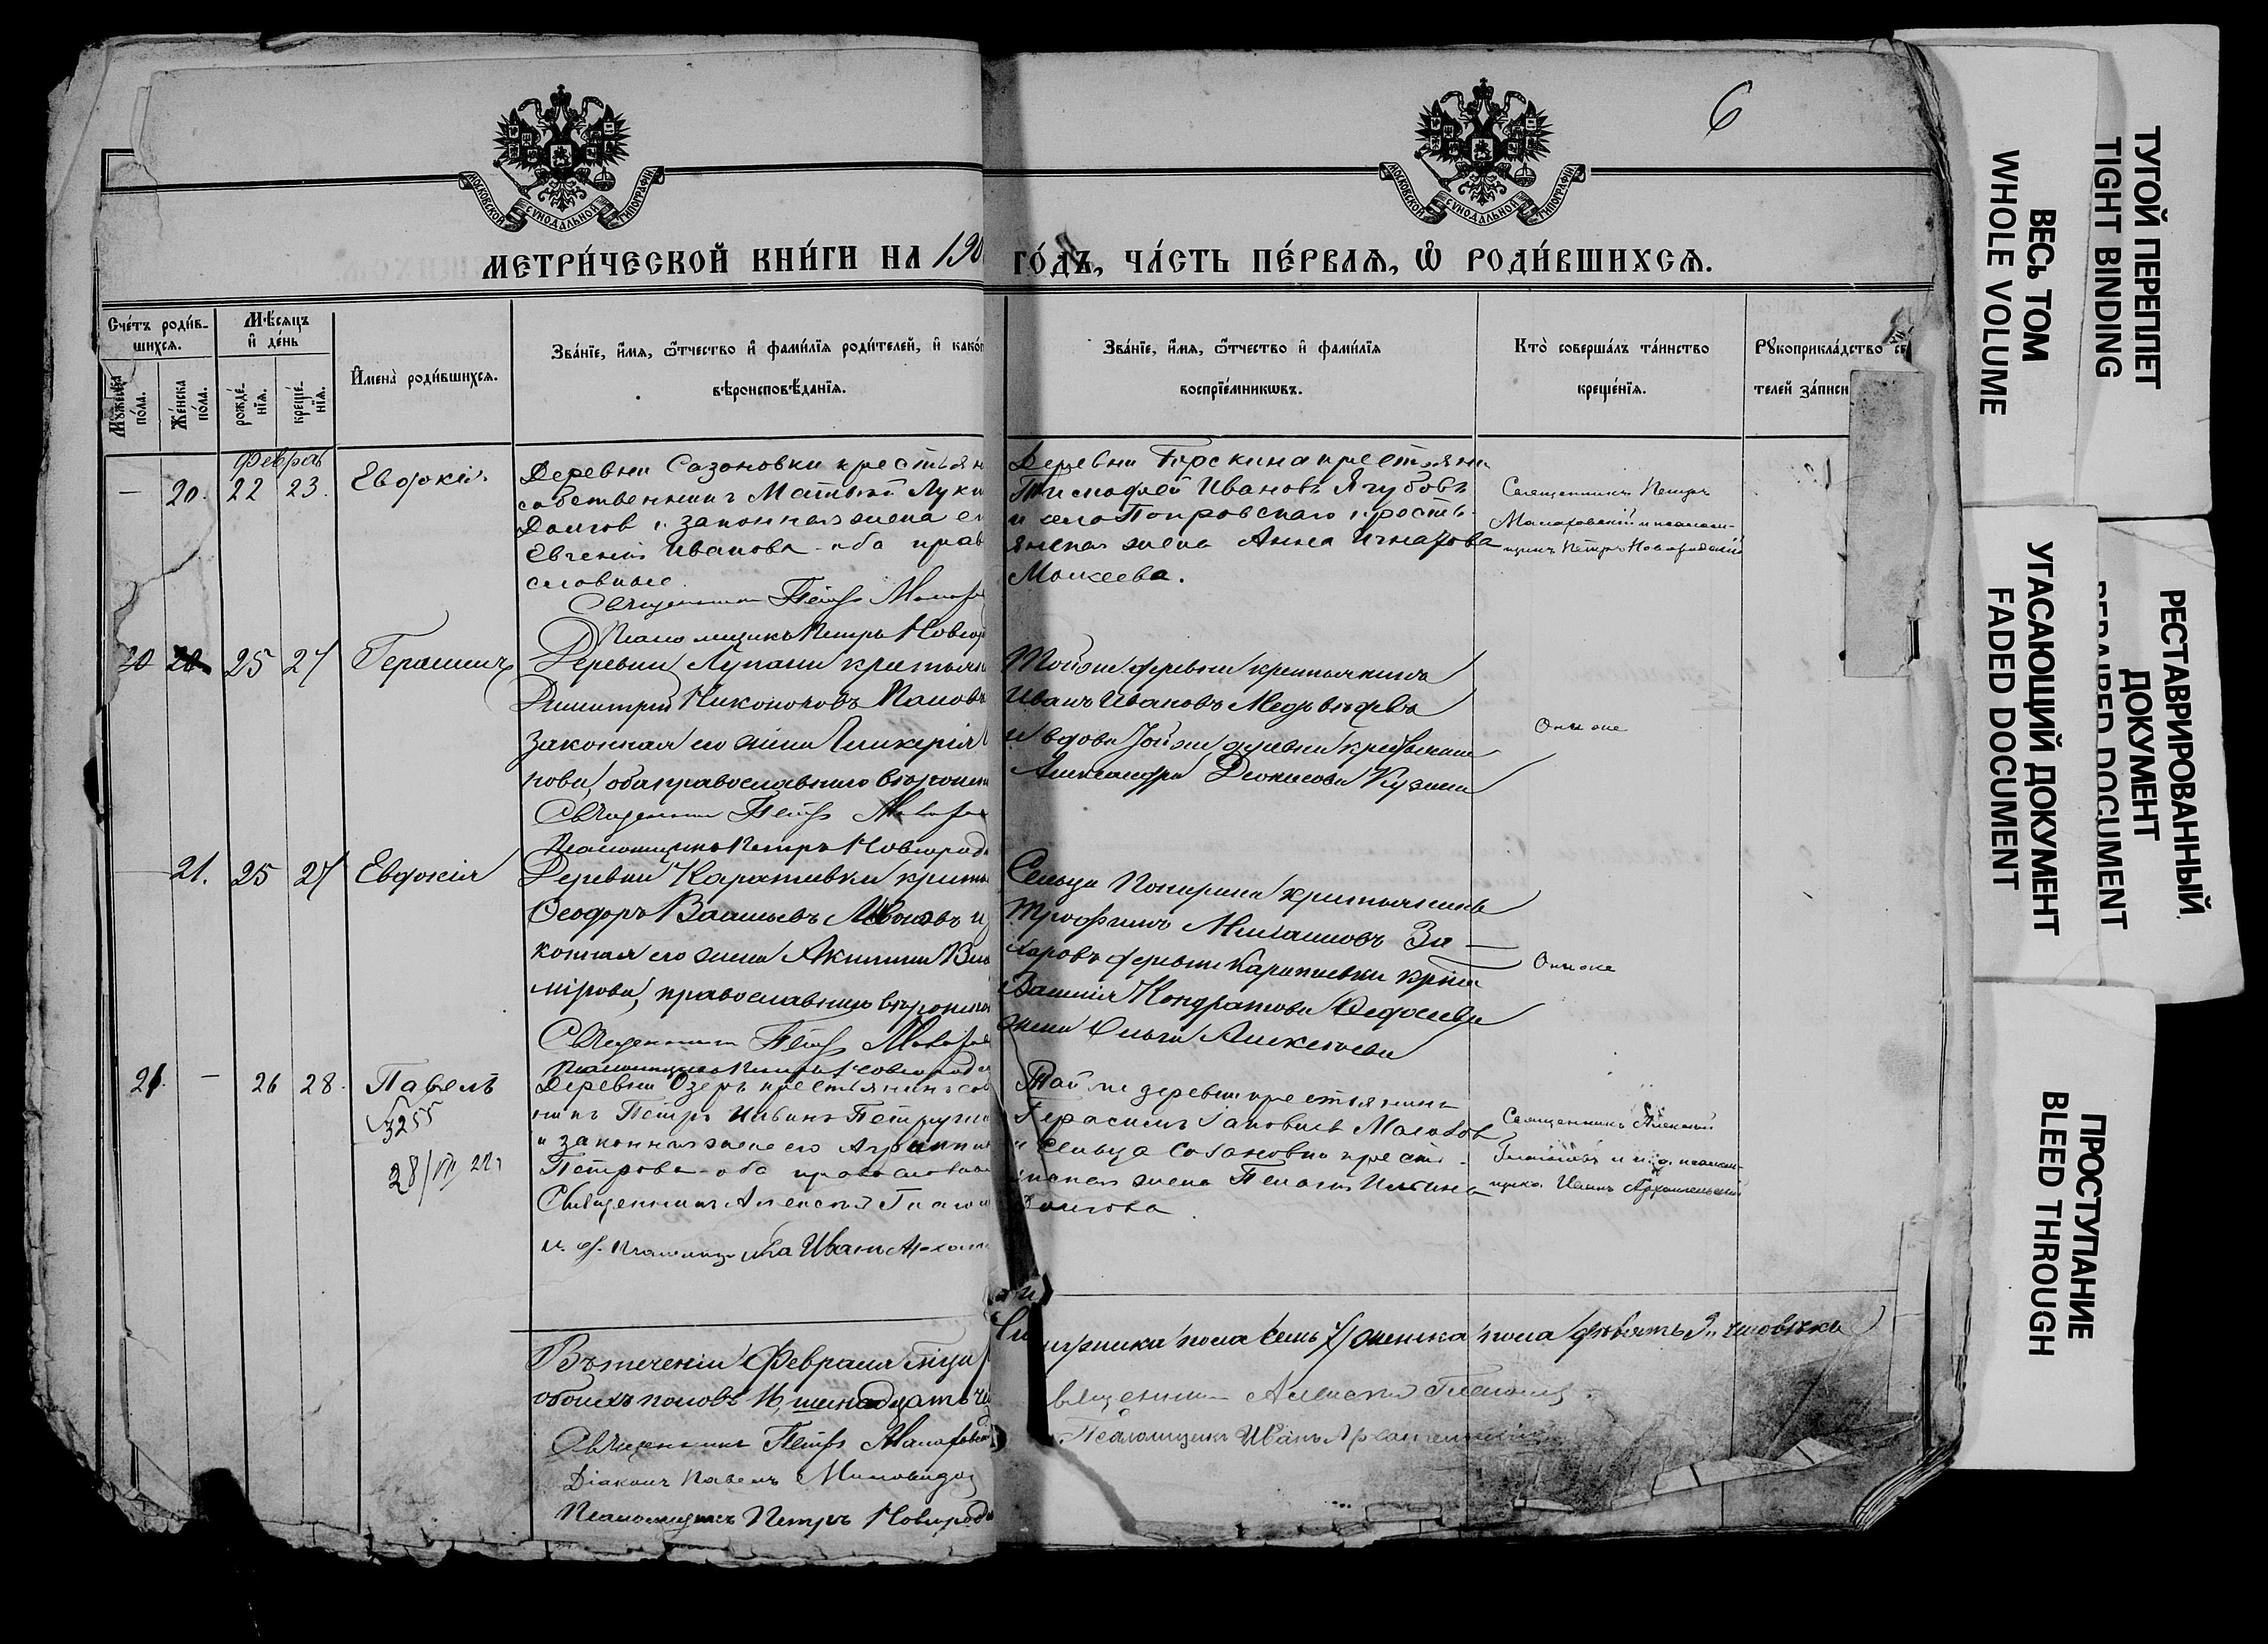 6
МОСКОВСКОЙ СѴНОДАЛЬНОЙ ТИПОГРАФІИ
МОСКОВСКОЙ СѴНОДАЛЬНОЙ ТИПОГРАФІИ
МЕТРИ́ЧЕСКОЙ КНИ́ГИ НА 190
ГО́ДЪ, ЧА́СТЬ ПЕ́РВАѦ, Ѽ РОДИ́ВШИХСѦ.
Сче́тъ роди́в-
шихсѧ.
Мꙋжеска по́ла.
Же́нска по́ла.
Мѣ́сѧцъ
и҆ де́нь
рожде́-
нїѧ.
креще́-
нїѧ.
И҆мена̀ роди́вшихсѧ.
Зва́нїе, и҆́мѧ, ѻ҆́тчество и҆ фами́лїѧ роди́телей, и҆ како́г
вѣроисповѣ́данїѧ.
Зва́нїе, и҆́мѧ, ѻ҆́тчество и҆ фами́лїѧ
воспрїе́мникѡвъ.
Кто̀ соверша́лъ та́инство
креще́нїѧ.
Рꙋкоприкла́дство св
телей за́писи
Февра
— 20. 22 23. Евдокія
Деревни Сазоновки крестьян
собственникъ Матвей Луки
Долгов и законная жена ег
Евгенія Иванова оба прав
славные.
Священникъ Петръ Макаров
Псаломщикъ Петръ Новгор
Деревни Горскина крестьяни
Тимофей Ивановъ Ягубовъ
и села Покровскаго крестья
янская жена Анна Игнатова
Моисеева.
Священникъ Петръ
Макаровскій и псалом-
щикъ Петръ Новгородскій
20 20 25 27 Герасимъ
Деревни Лупани крестьян
Димитрій Никоноровъ Поповъ
законная его жена Гликерія
нова, оба православнаго вѣроисп
Священникъ Петръ Макаров
Псаломщикъ Петръ Новгородс
Той же деревни крестьянинъ
Иванъ Ивановъ Медвѣдевъ
и вдова той же деревни крестьянка
Александра Денисова Кузина
Они же
21. 25 27 Евдокія
Деревни Каратаевки крестья
Ѳеодоръ Васильевъ
конная его жена Акилина
мірова, православнаго вѣроиспов
Священникъ Петръ Макаров
Псаломщикъ Петръ Новгородс
Сельца крестьянинъ
Трофимъ Михаиловъ За-
харовъ деревни Каратаевки крест
Василія Кондратова Ѳедосеева
жена Ольга Алексѣева
Они же
21. — 26 28. Павелъ
3255
28/VII 22г
Деревни Озеръ крестьянинъ соб
никъ Петръ Ильинъ Петруни
и законная жена его Агриппин
Петрова оба православные
Священникъ Алексей Глаго
и. д. псаломщика Иванъ Архан
Той же деревни крестьянинъ
Герасимъ
и сельца Сазановки крестья-
янская жена Пелагея Ильина
Долгова
Священникъ Алексей
и и. д. псалом-
щика Иванъ Архангельскій
Въ теченіи Февраля мѣсяца
обоихъ половъ 16, шестнадцать че
Священникъ Петръ Макаровск
Діаконъ Павелъ Миловидов
Псаломщикъ Петръ Новгородс
мужска пола семь 7, женска пола девять 9, человѣкъ
священникъ Алексей
Псаломщикъ Иванъ Архангельскій
ТУГОЙ ПЕРЕПЛЕТ
TIGHT BINDING
ВЕСЬ ТОМ
WHOLE VOLUME
РЕСТАВРИРОВАННЫЙ
ДОКУМЕНТ
REPAIRED DOCUMENT
УГАСАЮЩИЙ ДОКУМЕНТ
FADED DOCUMENT
ПРОСТУПАНИЕ
BLEED THROUGH